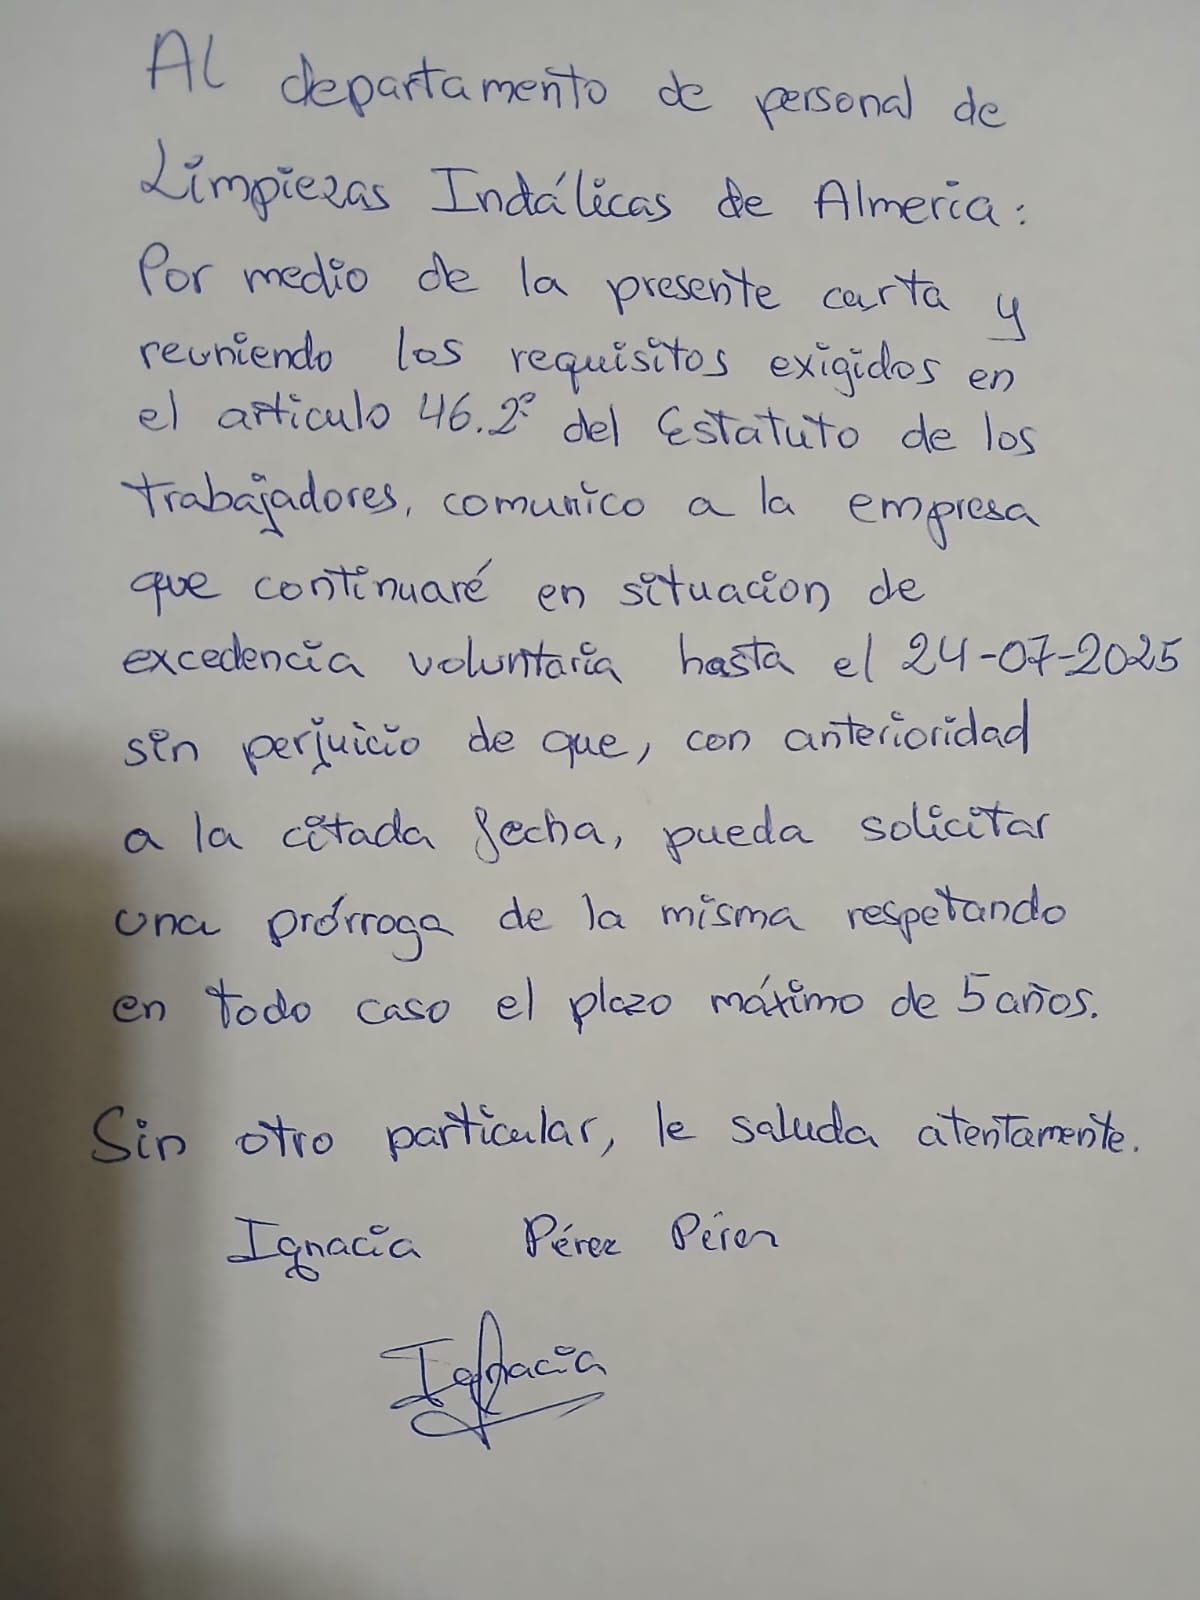 Al departamento de personal de
Limpiezas Indálicas de Almeria:
Por medio de la presente carta y
reuniendo los requisitos exigidos en
el articulo 46.2º del Estatuto de los
trabajadores, comunico a la empresa
que continuaré en situacion de
excedencia voluntaria hasta el 24-07-2025
sin perjuicio de que, con anterioridad
a la citada fecha, pueda solicitar
una prórroga de la misma respetando
en todo caso el plazo máximo de 5 años.
Sin otro particular, le saluda atentamente.
Ignacia Pérez Pérez
Ignacia